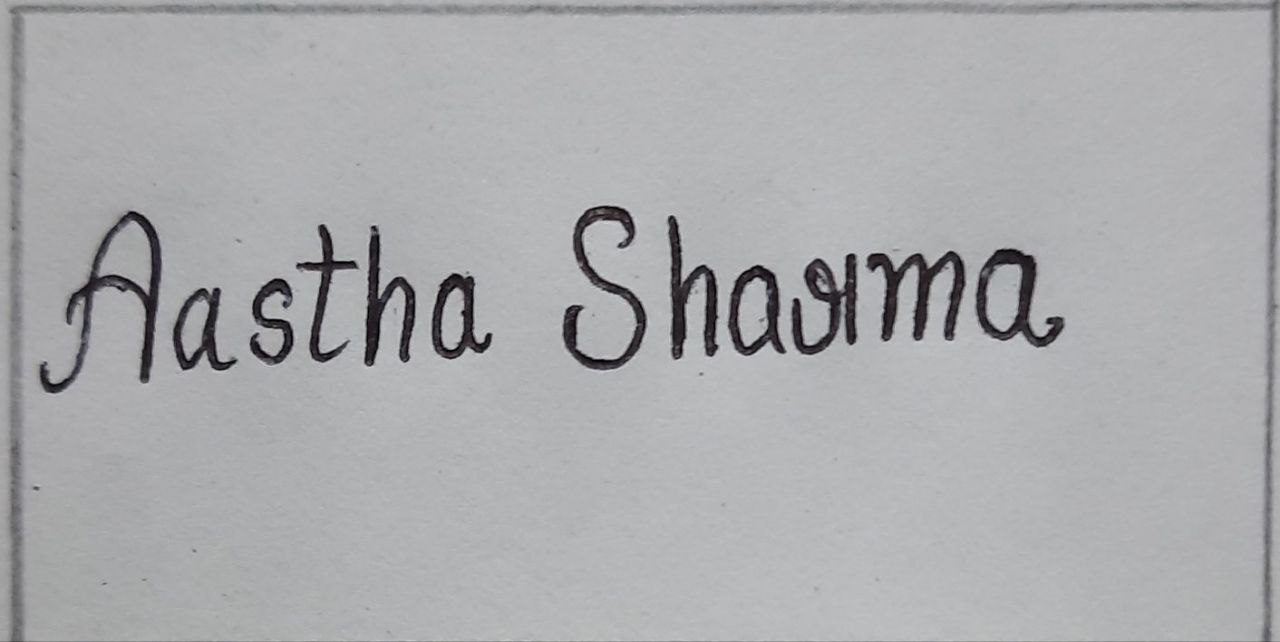 Aastha Sharma